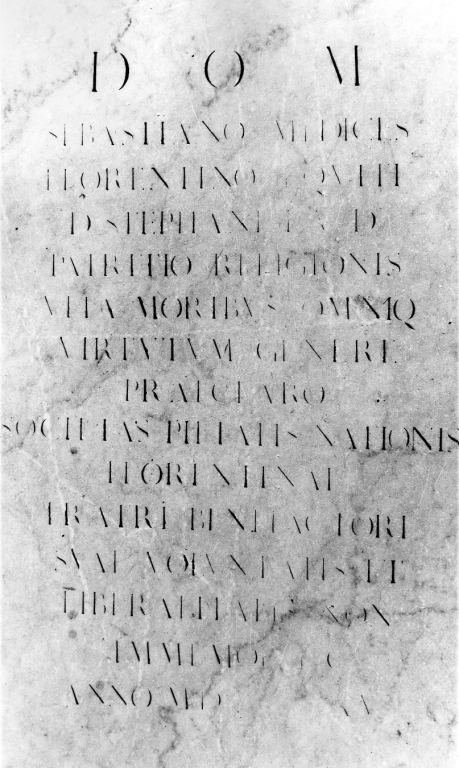 D O M
SEBASTIANO MEDICES
FLORENTINO EQVITI
D STEPHANI I V D
PATRITIO RELIGIONIS
VITA MORIBVS OMNIQ
VIRTVTVM GENERE
PRAECLARO
SOCIETAS PIETATIS NATIONIS
FLORENTINAE
FRATRI BENEFACTORI
SVAE VOLVNTATIS ET
LIBERALITATIS NON
IMMEMOR
ANNO MD